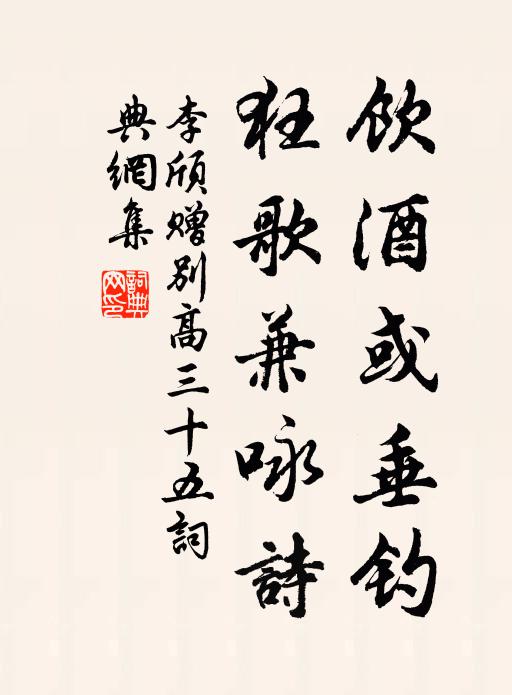 飲酒或垂钓
狂歌兼咏詩
李頎赠别高三十五詞
典網集
詞典网印